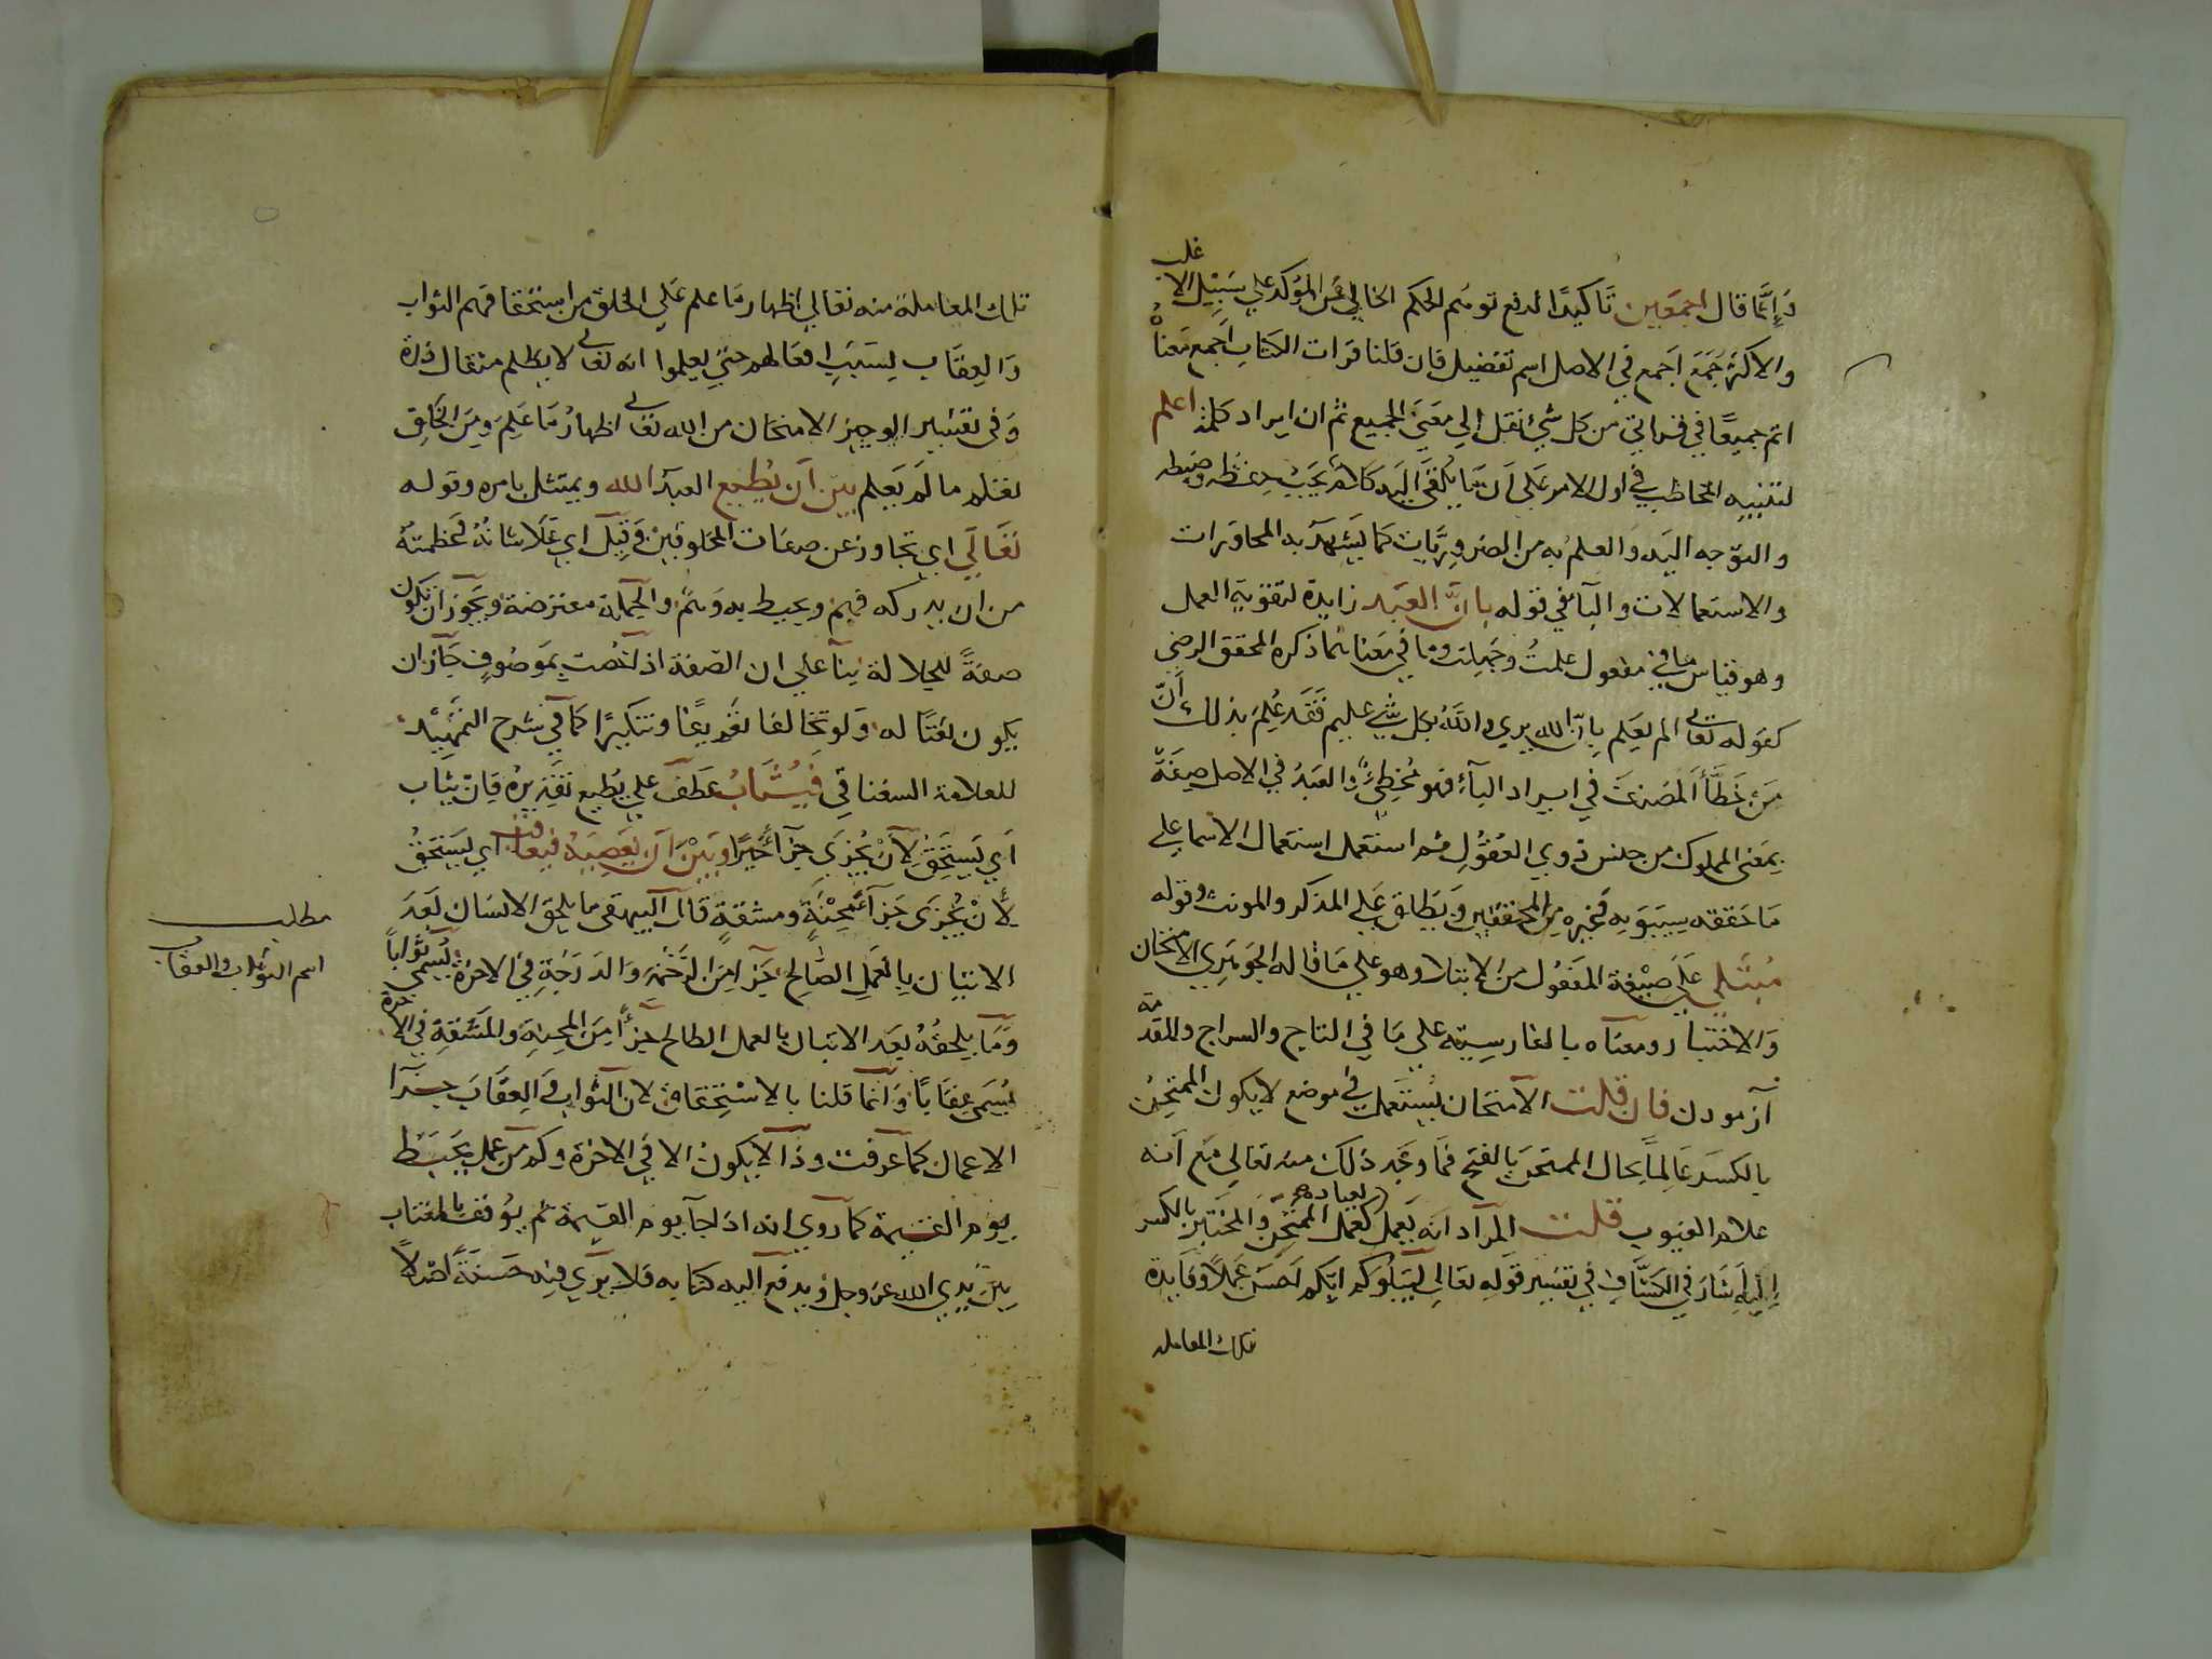 وَإِنَّمَا قال اجمعين تَاكيدًا لدفع توهّم الحكم الخالي عن المؤكد علي سَبِيْلِ الاغلب
والاكثر جُمَعَ اَجمع في الاصل اسم تفضيل فان قلنا قرات الكتاب اَجمع مَعناهُ
اتم جميعًا في قراتي من كل شئ نقل الي معني الجميع ثم ان ايراد كلمة اعلم
لتنبيه المخاطب في اول الامر عَلي اَنّ مَا يُلقَي اليَه كلام يَجِبُ حِفْظُه وضبطه
والتوّجه اليَه وَالعلمُ به من الضروريَّات كما يَشهَدُ به المحاوَرات
والاستعمالات والبآ في قوله بانَّ العَبَد زايدة لتقويةِ العمل
وهو قياس في مفعول علمتُ وجَهِلت وما في مَعناهما ذكره المحقق الرضي
كقوله تعالى الم يَعلم بِانّ الله يري والله بكل شي عليم فَقَد عُلِمَ بذلك اَنّ
مَن خَطَّأَ المصنفَ في ايراد البآءِ فهو مُخطِئٌ والعَبدُ في الاصل صِفَةٌ
بمَعنى المملوك من جنس ذوي العقُولِ ثم استعمل استعمال الاسما علي
مَا حققه سِيبَوَيه وَغيره من المحققين وَيَطلق عَلي المذكر والمونث وقوله
مُبتَلي عَلَي صِيْغة المَفعُول من الابتلا وهو علي مَا قاله الجوَهَرِي الامتحان
وَالاختبار ومعناه بالفارسِيّة علي مَا في التاج والسراج والمقدّمة
آزمودن فان قلت الامتحان يُستعمل في موضع لا يكون الممتحِنُ
بالكسر عَالِماً بحال الممتحَن بالفتح فمَا وَجه ذلك منه تعالي مَع اَنه
علام الغيوب قلت المراد انه يَعمل بعباده كعمل الممتحِن وَالمختبِر بالكسر
اِليه اَشَارَ في الكَشَّافِ في تفسير قوله تعالى لِيَبلُوَكم ايّكم اَحسَن عَمَلاً وفَايدة
تلك المعاملة
تلك المعاملة منه تعالي اظهار مَا علم عَلي الخلق من استحقاقهم الثواب
وَالعِقَاب بسَبَبِ افعالهم حتّي يعلموا انه تعالى لا يظلم مثقال ذرة
وَفى تفسير الوجيز الامتحان من الله تعالى اظهارُ مَا عَلِمَ مِنَ الخَلِق
مالَم يَعلم بين اَن يُطيع العبدُ الله ويمتثل بامره وقوله
تَعَالَي اي تجاوز عن صفات المخلوقِين وَقِيْل اي عَلَا شانهُ وَعَظمتهُ
من ان يدركه فهم ويحيط به وَهمٌ والجملة معترضة ويجَوز ان تكون
صفةً للجلالة بنآ علي ان الصّفة اذ اختُصت بمَوصُوفٍ جَاز ان
يكون نَعتًا له وَلو تخالفا تعْريفًا وتنكيرًا كما في شرح التمْهِيْد
للعلامة السغناقي فيُثَابُ عَطف علي يُطيع تقديرهُ فان يثاب
اَي يَستَحِقَّ لِاَنْ يُجزَي جزآءً خيرًا وبَيْن اَن يَعصِيَهُ فيعاقب اَي يَستحقُّ
لِاَنْ يُجزَى جزآءَ مِحنةٍ ومشقةٍ قال البيهقى ما يلحق الانسان بَعَد
الاتيان بالعَمل الصّالح جزآءً مِنَ الرَّحْمَةِ وَالدَرَجَةِ في الاخرة يُسَمي ثواباً
وَمَا يلحقُهُ بعَد الاتيان بالعمل الطالح جزآءً مِنَ المِحنةِ والمَشقةِ في الاخرة
يُسَمى عِقابًا وَانّما قلنا بالاسْتِحقَاقِ لان الثواب وَالعِقَابَ جزآ
الاعمال كما عرفت وذا لا يكون الا في الاخرة وكم مِن عمل يَحبَطُ
يوم القيمة كما روي انه اذ اجآ يوم القيمة ثم يوُتف بالمغتاب
بين يدي الله عز وجل ويدفع اليه كتابه فلا يرَي فيه حَسَنةً اصلاً
مطلب
اسم الثواب والعقاب